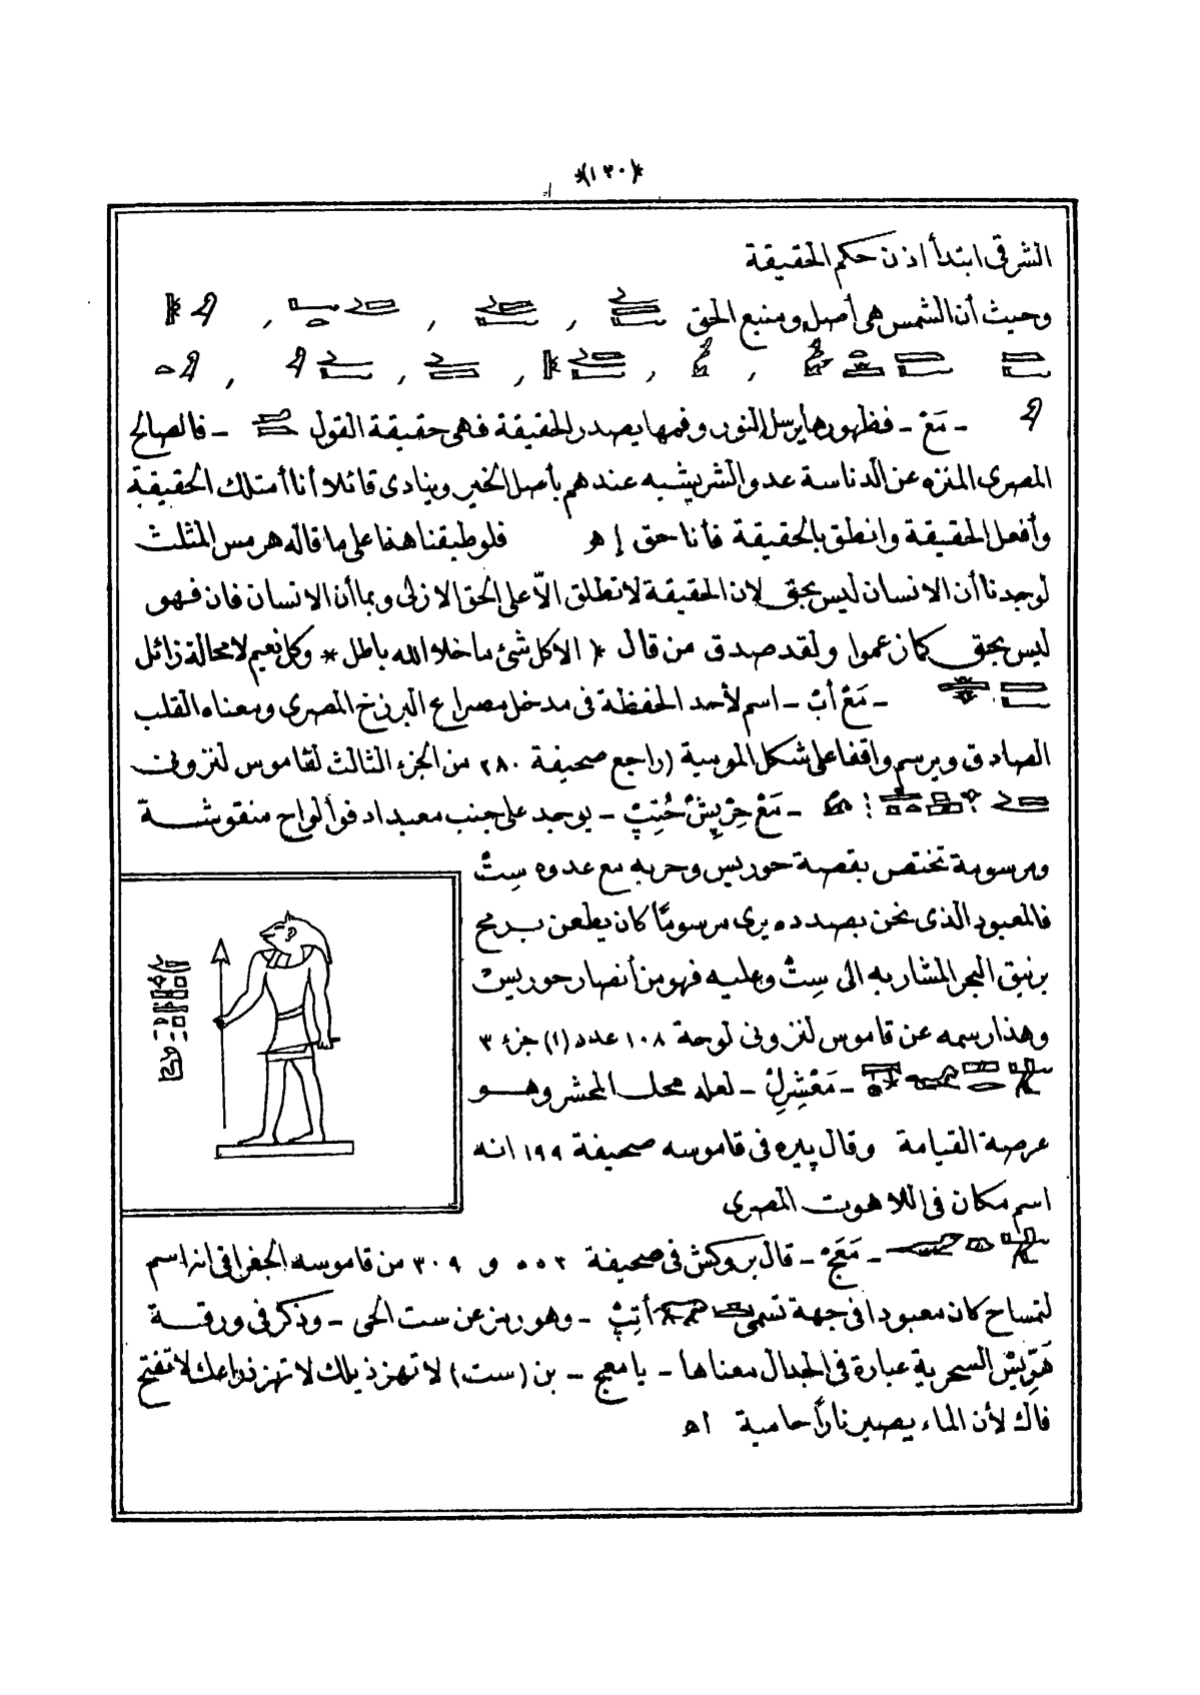 *(١٣٠)*
الشرقى ابتدأ اذن حكم الحقيقة
وحيث أن الشمس هى أصل ومنبع الحق
ـ مَعْ ـ فظهورها يرسل النور وفمها يصدر الحقيقة فهى حقيقة القول ـ فالصالح
المصرى المنزه عن الدناسة عدو الشر يشبه عندهم بأصل الخير وينادى قائلا أنا أمتلك الحقيقة
وأفعل الحقيقة وانطق بالحقيقة فأنا حق إ هـ فلو طبقنا هذا على ما قاله هرمس المثلث
لوجدنا أن الانسان ليس بحق لان الحقيقة لا تطلق الاّ على الحق الازلى وبما أن الانسان فان فهو
ليس بحق كما زعموا ولقد صدق من قال * الا كل شئ ما خلا الله باطل * وكل نعيم لا محالة زائل
ـ مَعْ أبْ ـ اسم لأحد الحفظة فى مدخل مصراع البرزخ المصرى ومعناه القلب
الصادق ويرسم واقفا على شكل الموسية (راجع صحيفة ٢٨٠ من الجزء الثالث لقاموس لنزونى
ـ مَعْ حِرْ پِشْ حُنِتِپْ ـ يوجد على جنب معبد ادفو ألواح منقوشة
ومرسومة تختص بقصة حوريس وحربه مع عدوه سِتْ
فالمعبود الذى نحن بصدده يرى مرسومًا كان يطعن برمح
برنيق البحر المشار به الى سِتْ وعليه فهو من أنصار حوريس
وهذا رسمه عن قاموس لنزونى لوحة ١٠٨ عدد (١) جزء ٣
ـ مَعْشِرِلْ ـ لعله محل المحشر وهو
عرصة القيامة وقال پيره فى قاموسه صحيفة ١٩٩ انه
اسم مكان فى اللاهوت المصرى
ـ مَعَجْ ـ قال بروكش فى صحيفة ٥٥٣ و ٣٠٩ من قاموسه الجغرافى انه اسم
لتمساح كان معبودا فى جهة تسمى أتِپْ ـ وهو رمز عن ست الحى ـ وذكر فى ورقة
هَرِّيسْ السحرية عبارة فى الجدال معناها ـ يا معج ـ بن (ست) لا تهز ذيلك لا تهز ذراعك لا تفتح
فاك لأن الماء يصير نارًا حامية اهـ